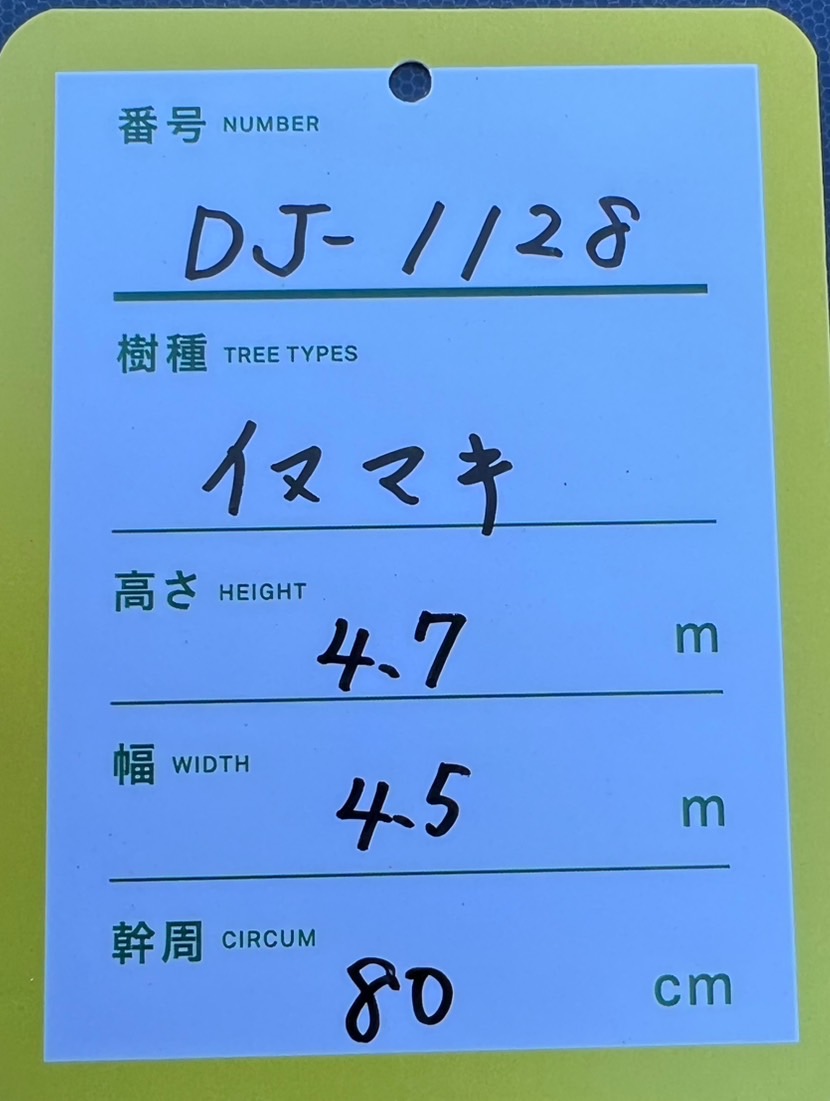 番号 NUMBER
DJ-1128
樹種 TREE TYPES
イヌマキ
高さ HEIGHT
4.7 m
幅 WIDTH
4.5 m
幹周 CIRCUM
80 cm